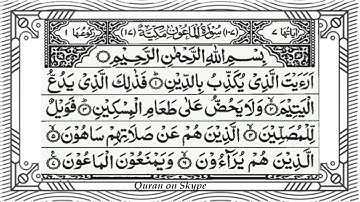 اٰيَاتُهَا ٧ (١٠٧) سُوْرَةُ الْمَاعُوْنِ مَكِّيَّةٌ (١٧) رُكُوْعُهَا ١
بِسْمِ اللهِ الرَّحْمٰنِ الرَّحِيْمِ
اَرَءَيْتَ الَّذِىْ يُكَذِّبُ بِالدِّيْنِ ؕ﴿١﴾ فَذٰلِكَ الَّذِىْ يَدُعُّ
الْيَتِيْمَ ۙ﴿٢﴾ وَلَا يَحُضُّ عَلٰى طَعَامِ الْمِسْكِيْنِ ؕ﴿٣﴾ فَوَيْلٌ
لِّلْمُصَلِّيْنَ ۙ﴿٤﴾ الَّذِيْنَ هُمْ عَنْ صَلَاتِهِمْ سَاهُوْنَ ۙ﴿٥﴾
الَّذِيْنَ هُمْ يُرَآءُوْنَ ۙ﴿٦﴾ وَيَمْنَعُوْنَ الْمَاعُوْنَ ﴿٧﴾
Quran on Skype